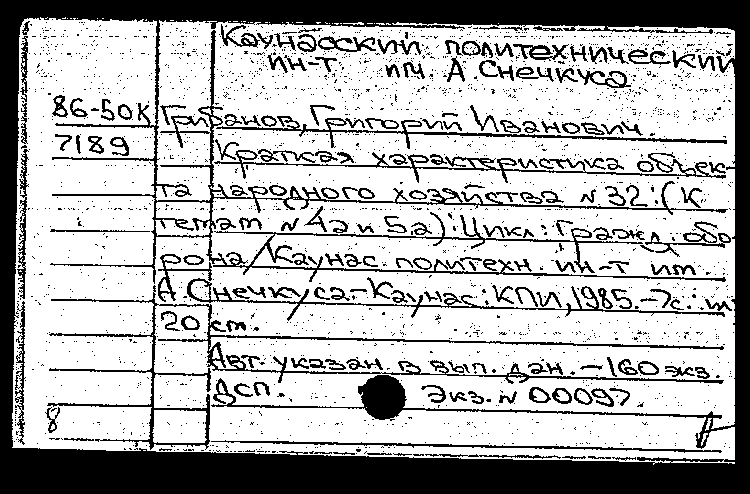 Каунасский политехнический
ин-т им. А. Снечкуса
86-50К Грибанов, Григорий Иванович.
7189 Краткая характеристика объек-
та народного хозяйства № 32: (К
темам № 4а и 5а): Цикл: Гражд. обо-
рона / Каунас. политехн. ин-т им.
А. Снечкуса. - Каунас: КПИ, 1985. - 7с.:
20 см.
Авт. указан в вып. дан. - 160 экз.
ДСП. Экз. № 00097.
8